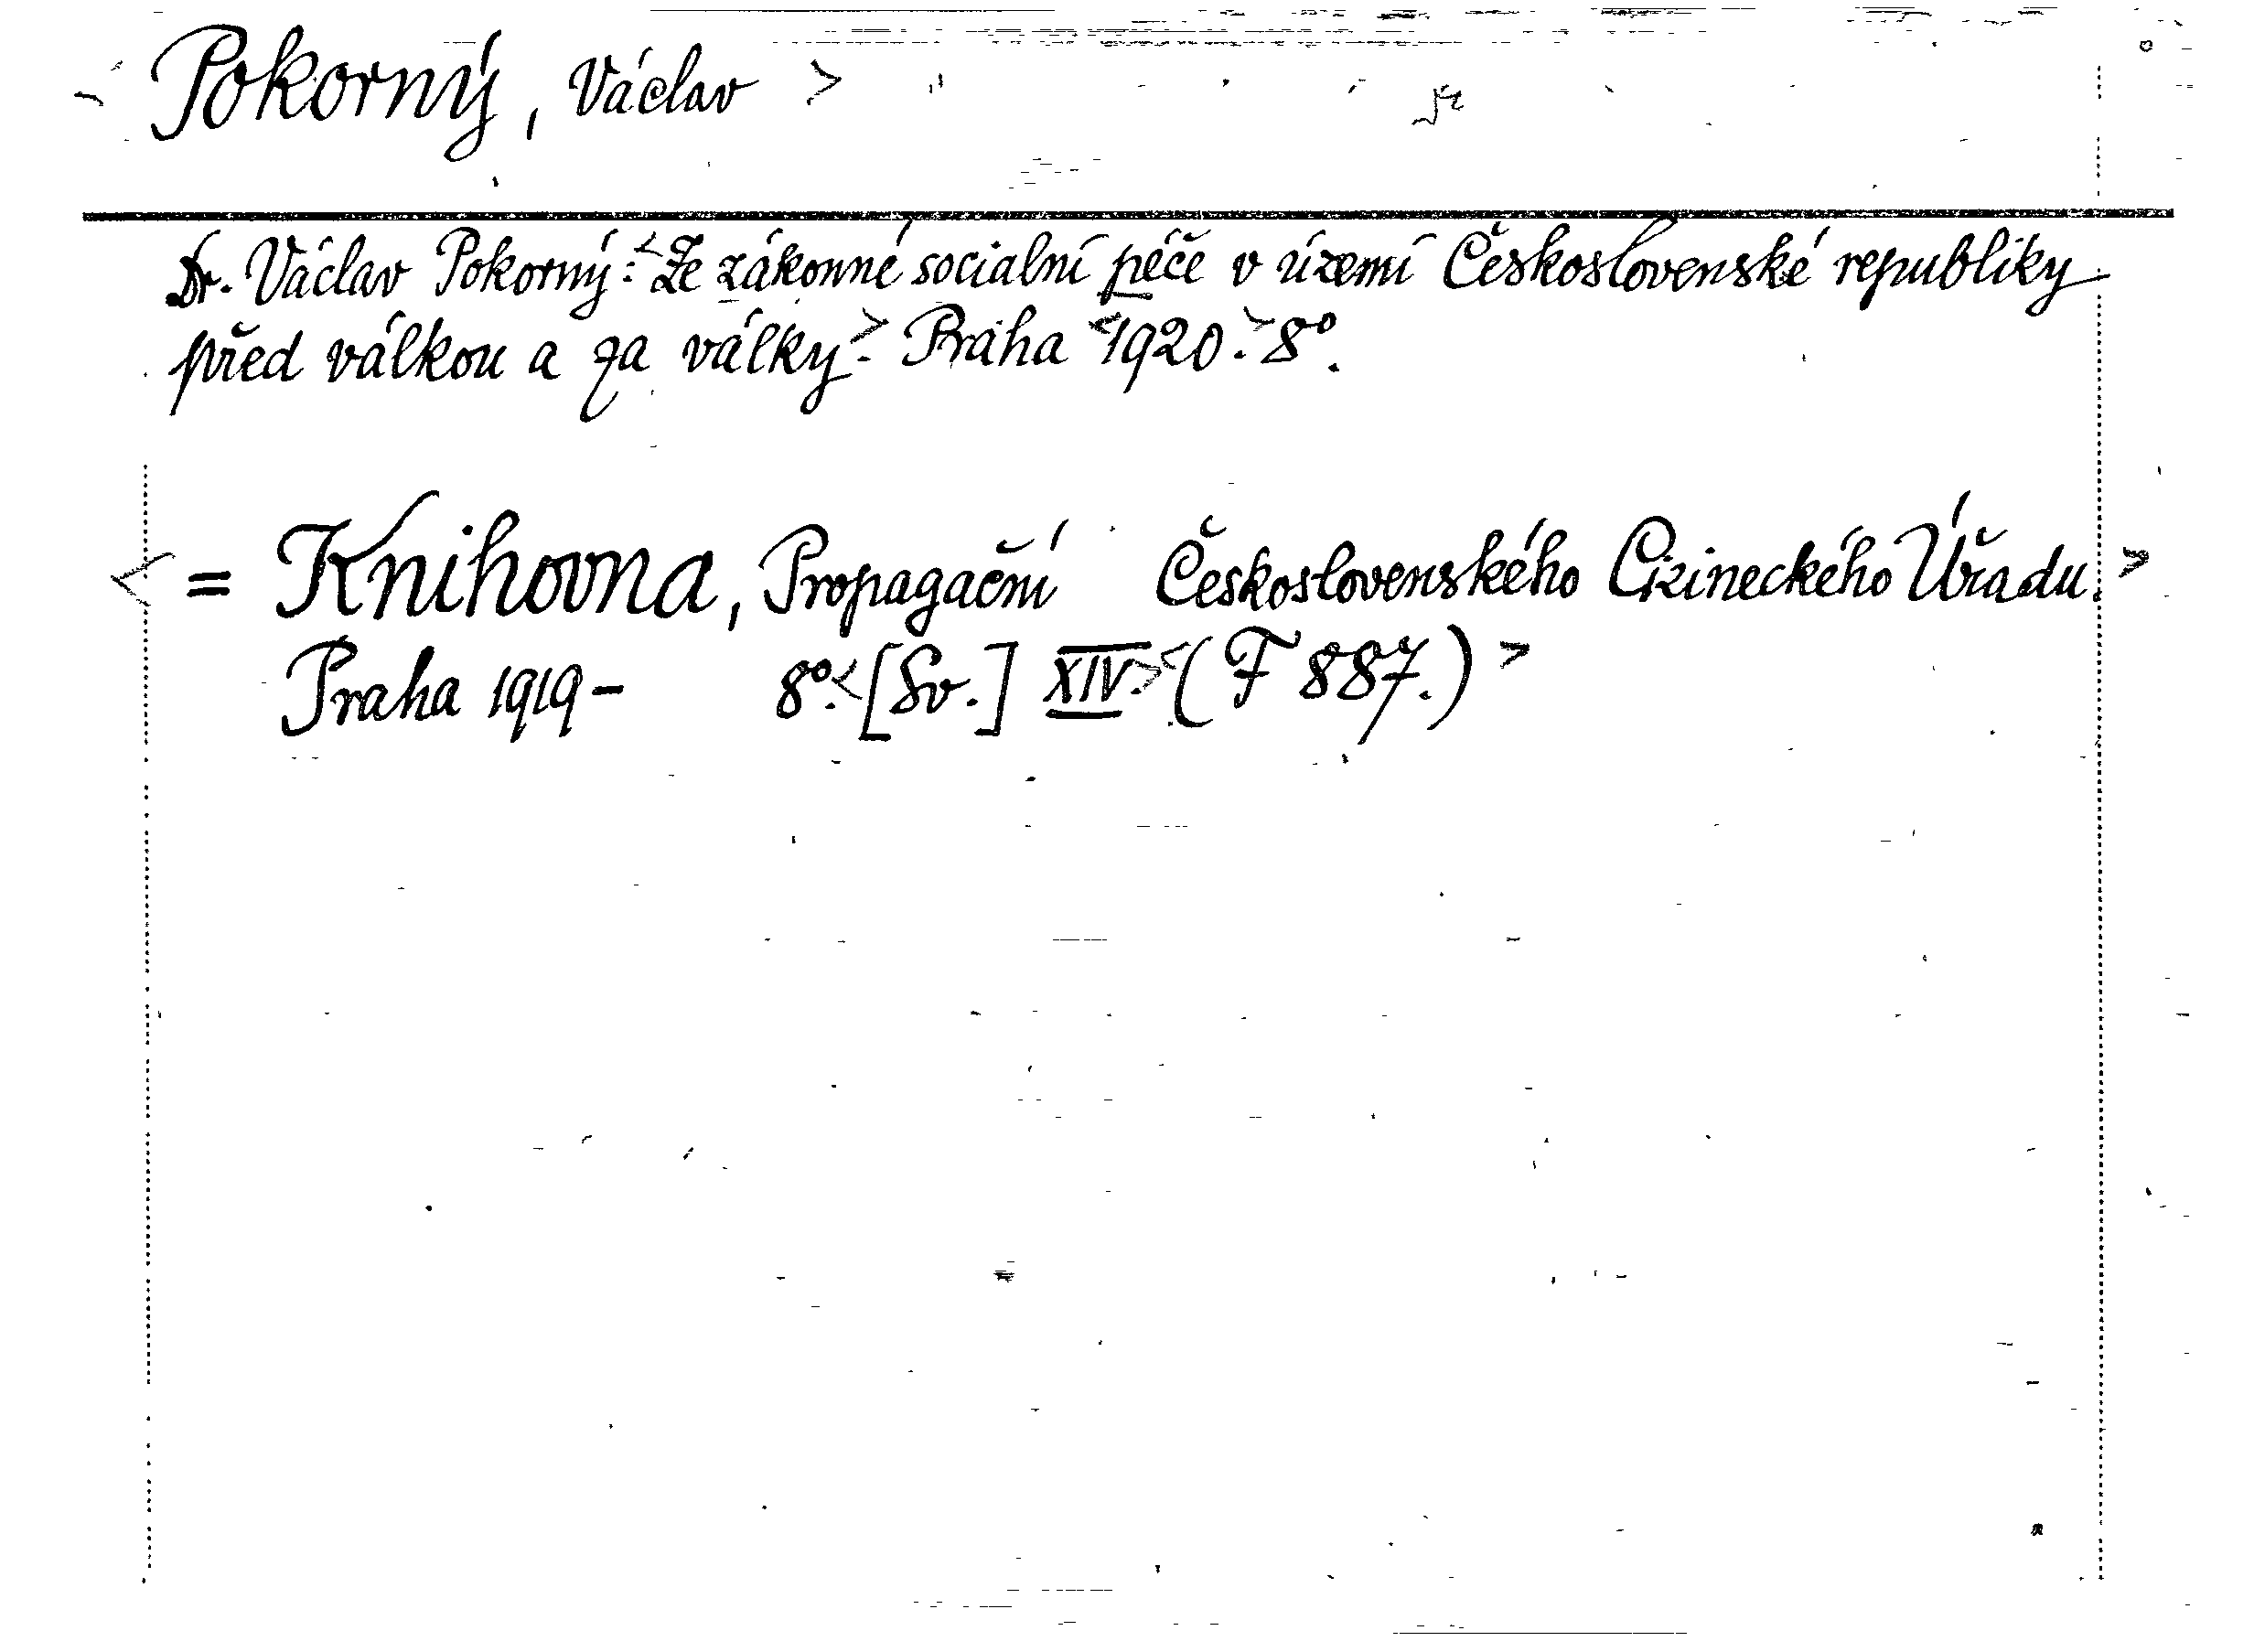 Pokorný, Václav >
Dr. Václav Pokorný: <Ze zákonné socialní péče v území Československé republiky
před válkou a za války.> Praha <1920.> 8°.
< = Knihovna, Propagační Československého Cizineckého Úřadu. >
Praha 1919- 8°. <[Sv.] XIV.> <(F 887.) >